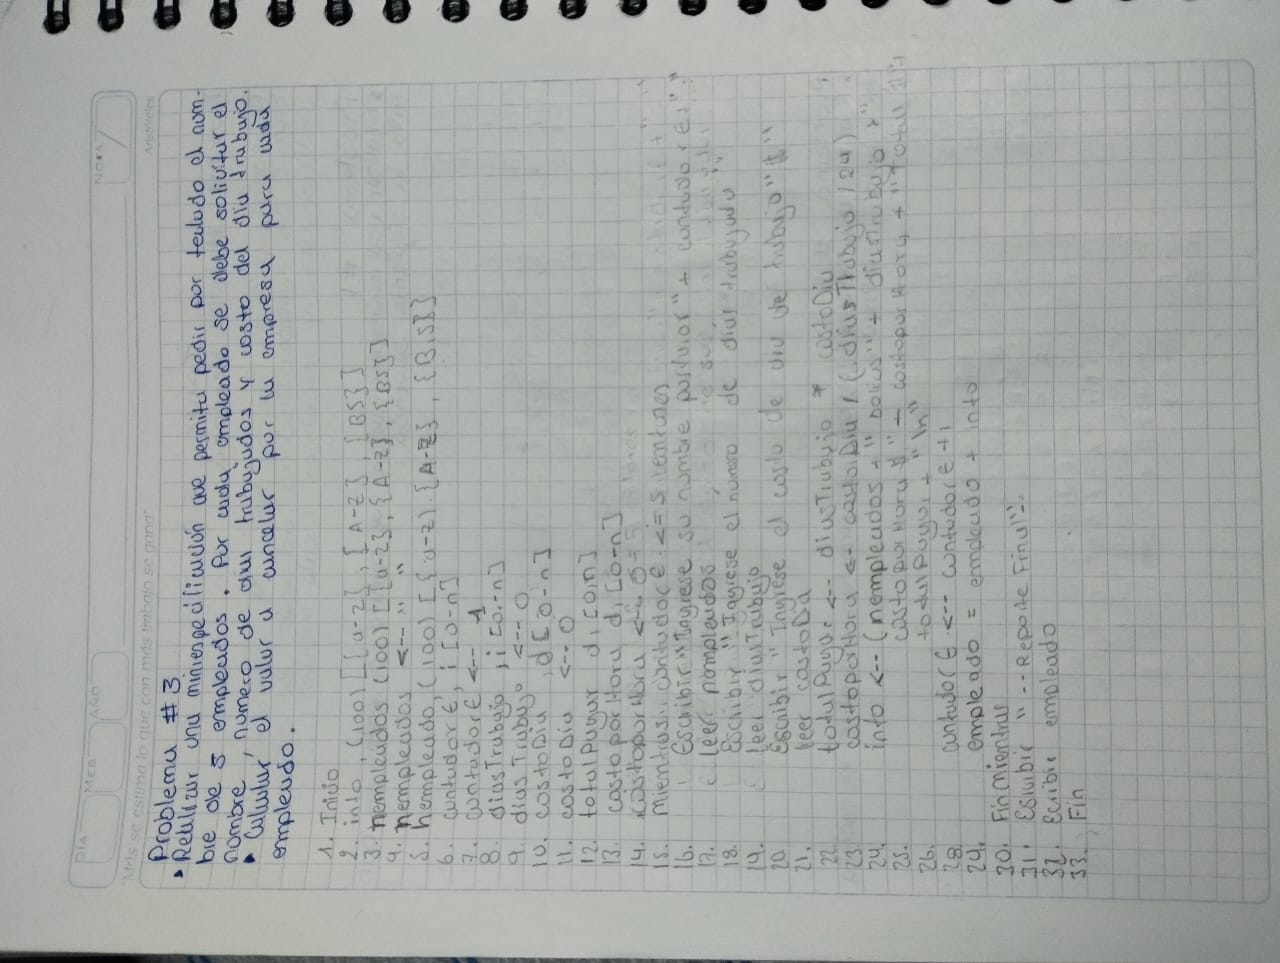 DIA
MES
AÑO
NOTA
"Más se estima lo que con más trabajo se gana"
Aristóteles
• Problema # 3
• Realizar una miniespecificación que permita pedir por teclado el nom-
bre de 5 empleados. Por cada empleado se debe solicitar el
nombre, numero de dias trabajados y costo del dia trabajo.
• Calcular, el valor a cancelar por la empresa para cada
empleado.
1. Inicio
2. into, (100) [[a-z], [A-Z], [BS]]
3. nempleados (100) [[a-z], {A-Z}, {BS}]
4. nempleados <--- " "
5. hempleado, (100) [{a-z}, [A-Z], {BIS}]
6. contadorE, i [0-n]
7. contadorE <-- 1
8. diasTrabajo, i [0,-n]
9. diasTrabajo <--- 0
10. costoDia, d [0-n]
11. costo Dia <-- 0
12. total Pagar d, [0,n]
13. costo por Hora d, [0-n]
14. costoporHora <--
15. Mientras: contadorE <= 5 entonces
16. Escribir "Ingrese su nombre por favor" +
17. leer nempleados
18. Escribir "Ingrese el número de dias trabajado
19. leer diasTrabajo
20. Escribir "Ingrese el costo de dia de trabajo"
21. leer costoDa
22. totalPagar <--- diasTrabajo * costoDia
23. costoporHora <-- costoDia / (diasTrabajo /24)
24. into <-- (nempleados + + diasTrabajo +"
25. costoporHora + "Total
26. totalPagar + "ln"
28. contadorE <--- contadorE +1
29. empleado = empleado + into
30. Finmientras
31. Escribir "-- Reporte Final"--
32. Escribir empleado
33. Fin